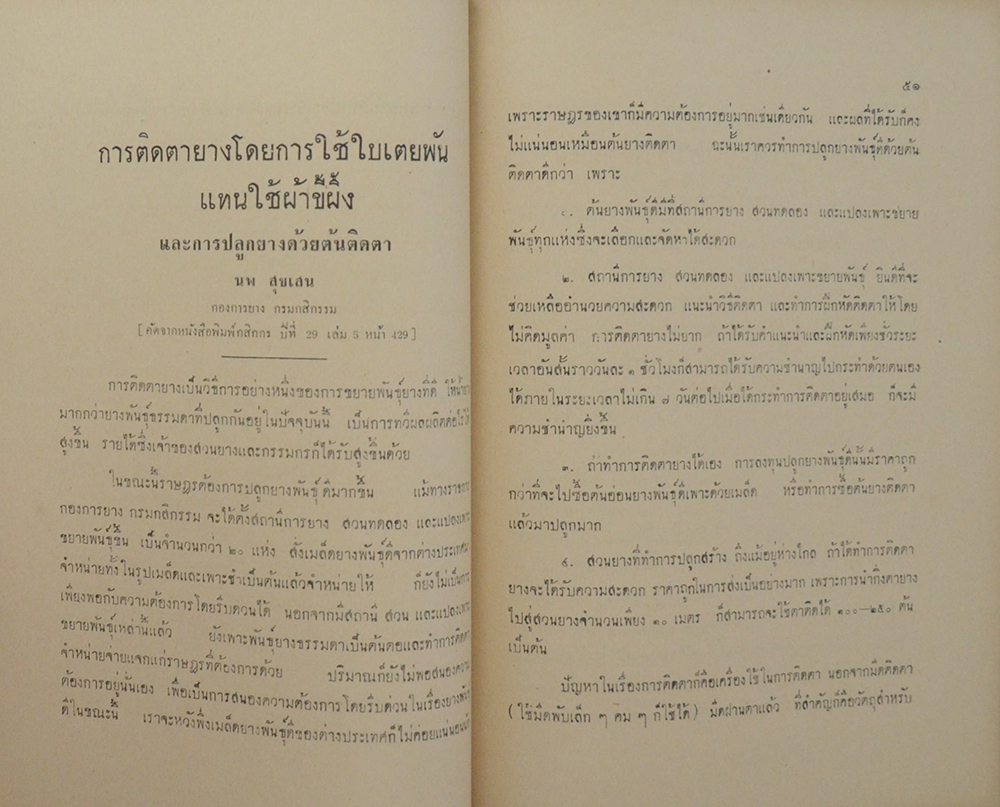 การติดตายางโดยการใช้ใบเตยพัน
แทนใช้ผ้าขี้ผึ้ง
และการปลูกยางด้วยต้นติดตา
นพ สุขเสน
กองการยาง กรมกสิกรรม
[ คัดจากหนังสือพิมพ์กสิกร ปีที่ 29 เล่ม 5 หน้า 429 ]
การติดตายางเป็นวิธีการอย่างหนึ่งของการขยายพันธุ์ยางที่ดี
มากกว่ายางพันธุ์ธรรมดาที่ปลูกกันอยู่ในปัจจุบันนี้ เป็นการทวีผลผลิตต่อไร่ให้
สูงขึ้น รายได้ซึ่งเจ้าของสวนยางและกรรมกรก็ได้รับสูงขึ้นด้วย
ในขณะนี้ราษฎรต้องการปลูกยางพันธุ์ดีมากขึ้น แม้ทางราชการ
กองการยาง กรมกสิกรรม จะได้ตั้งสถานีการยาง สวนทดลอง และแปลงเพาะ
ขยายพันธุ์ขึ้น เป็นจำนวนกว่า ๒๐ แห่ง สั่งเมล็ดยางพันธุ์ดีจากต่างประเทศมา
จำหน่ายทั้งในรูปเมล็ดและเพาะชำเป็นต้นแล้วจำหน่ายให้ ก็ยังไม่เป็นการ
เพียงพอกับความต้องการโดยรีบด่วนได้ นอกจากมีสถานี สวน และแปลงเพาะ
ขยายพันธุ์เหล่านี้แล้ว ยังเพาะพันธุ์ยางธรรมดาเป็นต้นตอและทำการติดตา
จำหน่ายจ่ายแจกแก่ราษฎรที่ต้องการด้วย ปริมาณก็ยังไม่พอสนองความ
ต้องการอยู่นั่นเอง เพื่อเป็นการสนองความต้องการโดยรีบด่วนในเรื่องยางพันธุ์
ดีในขณะนี้ เราจะหวังพึ่งเมล็ดยางพันธุ์ดีของต่างประเทศก็ไม่ค่อยแน่นอนนัก
๕๑
เพราะราษฎรของเขาก็มีความต้องการอยู่มากเช่นเดียวกัน และผลที่ได้รับก็คง
ไม่แน่นอนเหมือนต้นยางติดตา ฉะนั้นเราควรทำการปลูกยางพันธุ์ดีด้วยต้น
ติดตาดีกว่า เพราะ
๑. ต้นยางพันธุ์ดีมีที่สถานีการยาง สวนทดลอง และแปลงเพาะขยาย
พันธุ์ทุกแห่งซึ่งจะเลือกและจัดหาได้สะดวก
๒. สถานีการยาง สวนทดลอง และแปลงเพาะขยายพันธุ์ ยินดีที่จะ
ช่วยเหลืออำนวยความสะดวก แนะนำวิธีติดตา และทำการฝึกหัดติดตาให้โดย
ไม่คิดมูลค่า การติดตายางไม่ยาก ถ้าได้รับคำแนะนำและฝึกหัดเพียงชั่วระยะ
เวลาอันสั้นราววันละ ๑ ชั่วโมงก็สามารถได้รับความชำนาญไปกระทำด้วยตนเอง
ได้ภายในระยะเวลาไม่เกิน ๗ วันต่อไปเมื่อได้กระทำการติดตาอยู่เสมอ ก็จะมี
ความชำนาญยิ่งขึ้น
๓. ถ้าทำการติดตายางได้เอง การลงทุนปลูกยางพันธุ์ดีนั้นมีราคาถูก
กว่าที่จะไปซื้อต้นอ่อนยางพันธุ์ดีเพาะด้วยเมล็ด หรือทำการซื้อต้นยางติดตา
แล้วมาปลูกมาก
๔. สวนยางที่ทำการปลูกสร้าง ถึงแม้อยู่ห่างไกล ถ้าได้ทำการติดตา
ยางจะได้รับความสะดวก ราคาถูกในการส่งเป็นอย่างมาก เพราะการนำกิ่งตายาง
ไปสู่สวนยางจำนวนเพียง ๑๐ เมตร ก็สามารถจะใช้ตาติดได้ ๑๐๐—๒๕๐ ต้น
เป็นต้น
ปัญหาในเรื่องการติดตาก็คือเครื่องใช้ในการติดตา นอกจากมีดติดตา
( ใช้มีดพับเล็ก ๆ คม ๆ ก็ใช้ได้ ) มีดผ่านตาแล้ว ที่สำคัญก็คือวัตถุสำหรับ